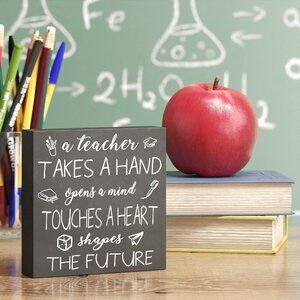 a teacher
TAKES A HAND
opens a mind
TOUCHES A HEART
shapes
THE FUTURE
H₂O